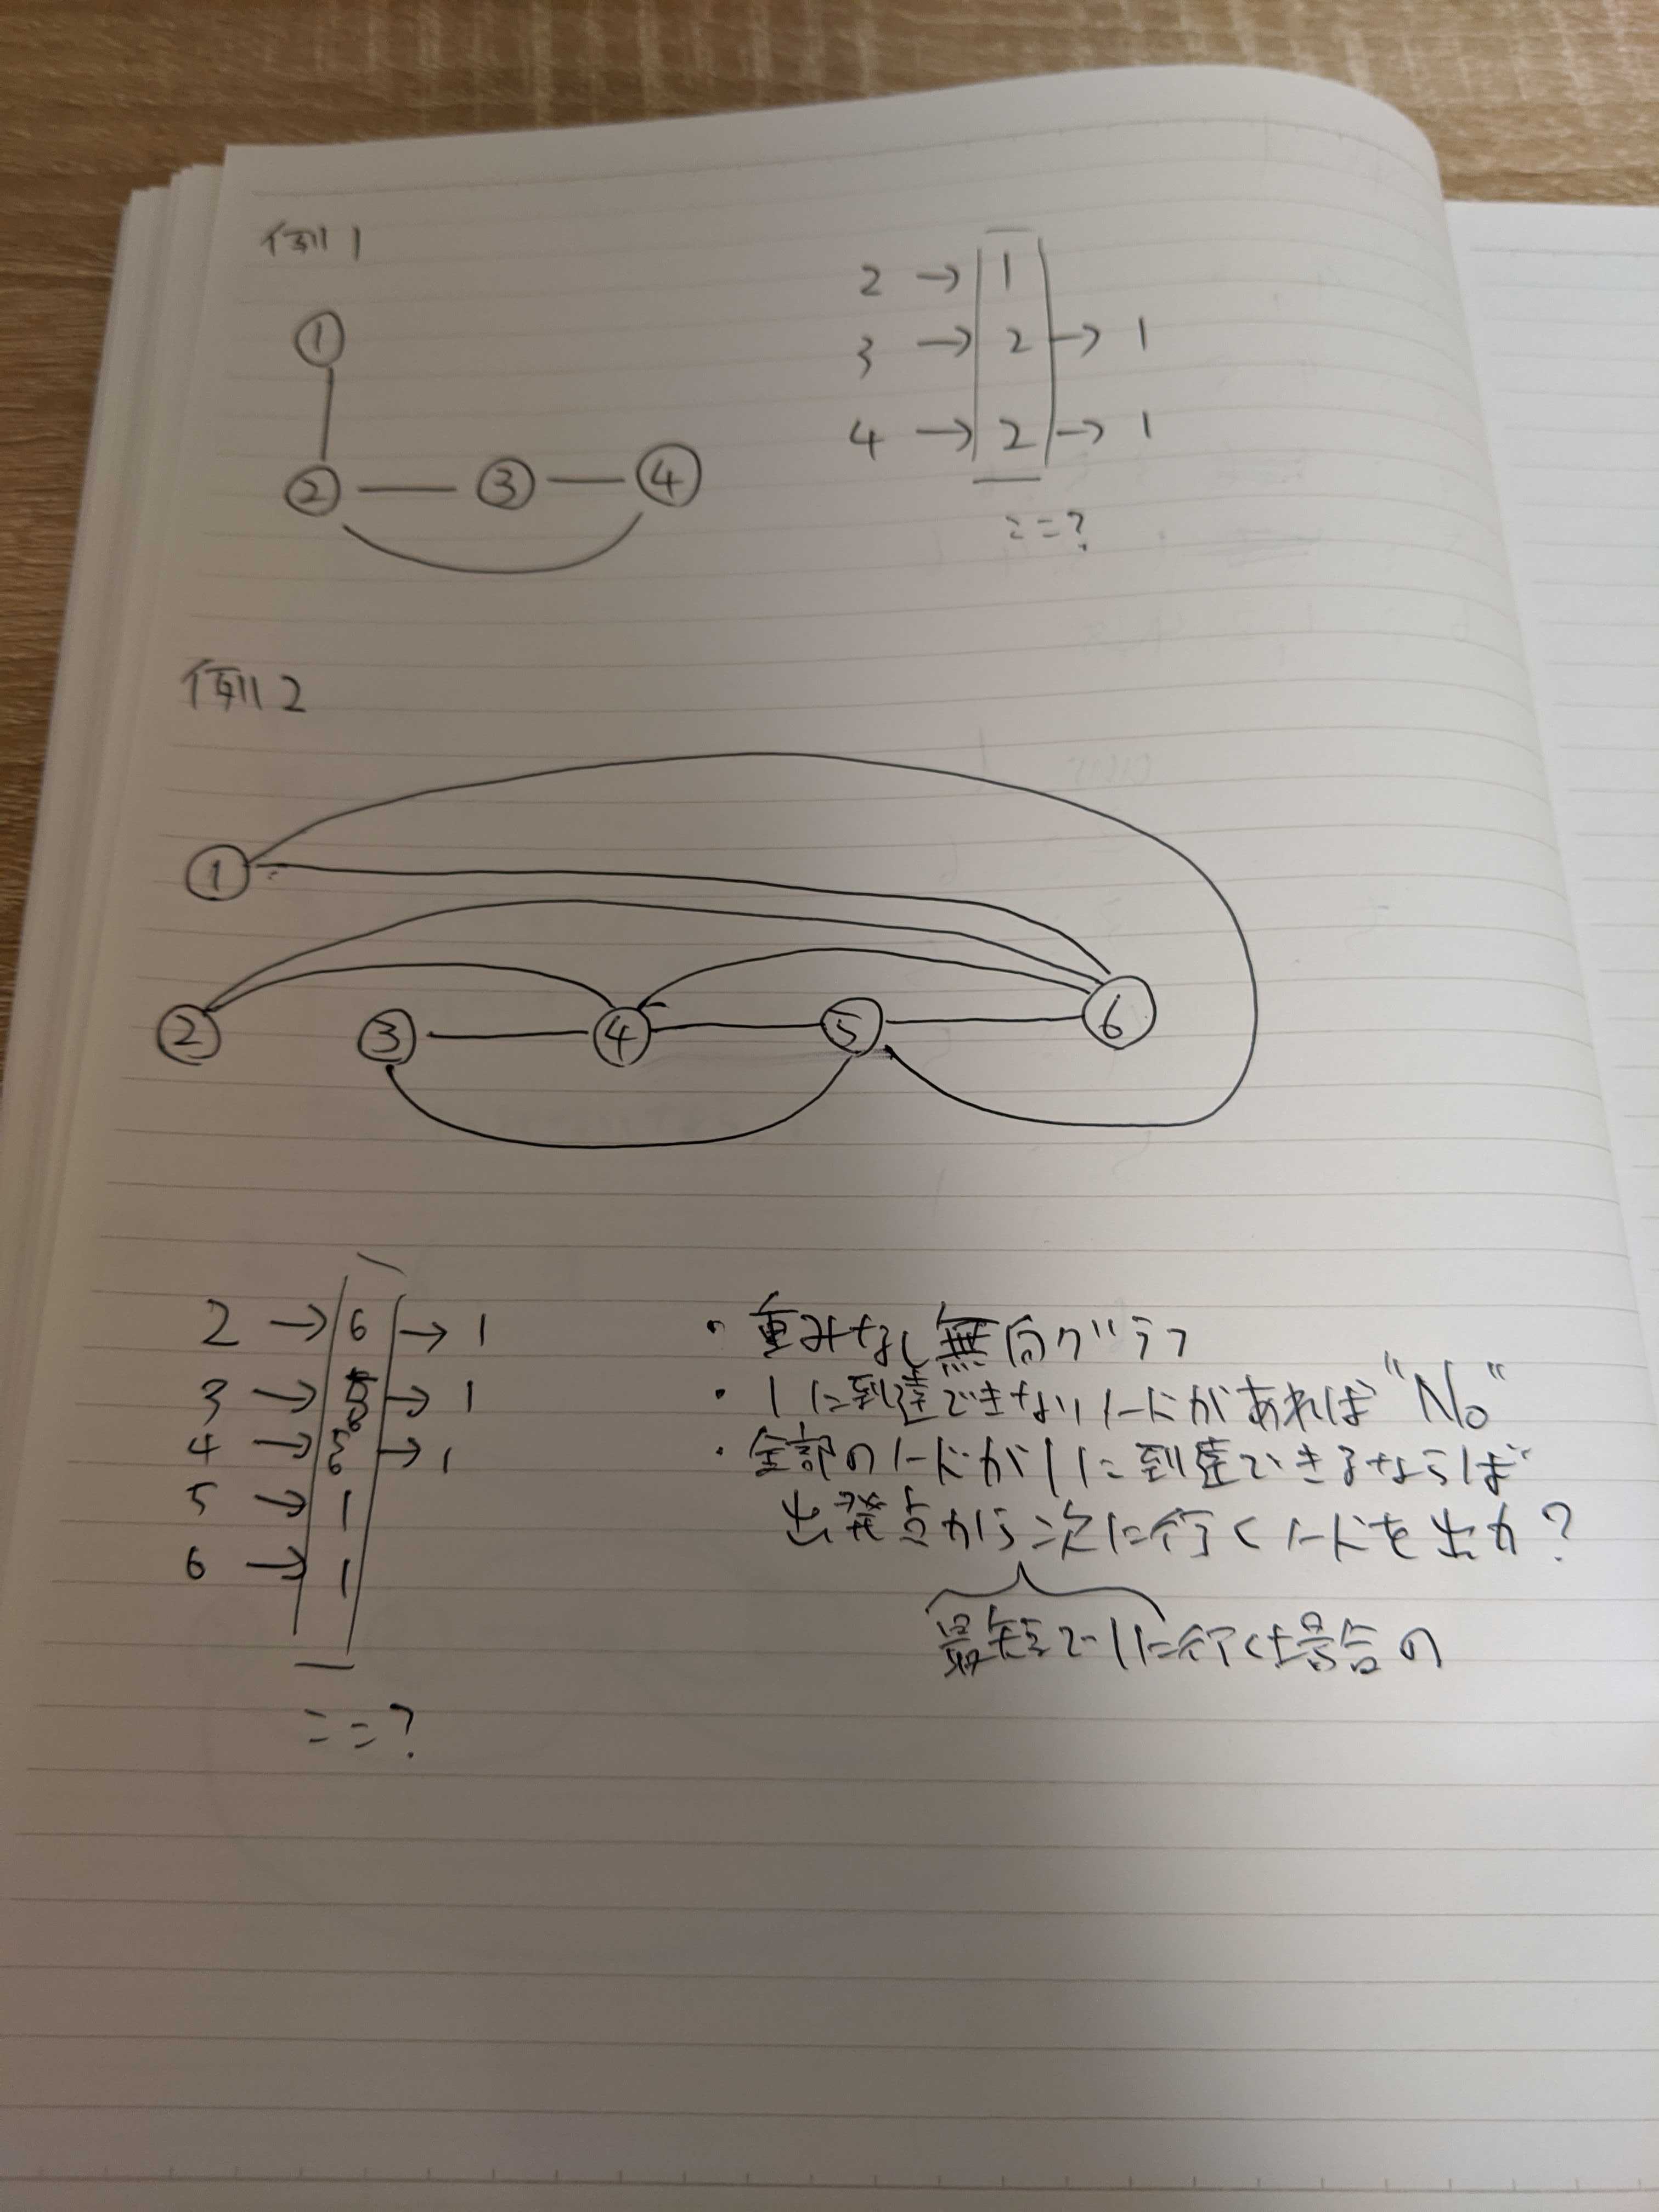 例1
①
② ③ ④
2 → 1
3 → 2 → 1
4 → 2 → 1
==?
例2
①
② ③ ④ ⑤ ⑥
2 → 6 → 1
3 → 5 → 1
4 → → 1
5 → 1
6 → 1
==?
・重みなし無向グラフ
・1に到達できないノードがあれば"No"
・全部のノードが1に到達できるならば
出発点から次に行くノードを出力?
最短で1に行く場合の